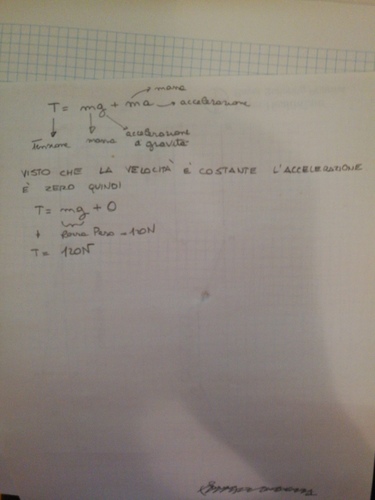 massa
T = mg + ma → accelerazione
Tensione massa accelerazione
di gravità
VISTO CHE LA VELOCITÀ È COSTANTE L'ACCELERAZIONE
È ZERO QUINDI
T = mg + 0
Forza Peso = 120N
T = 120N